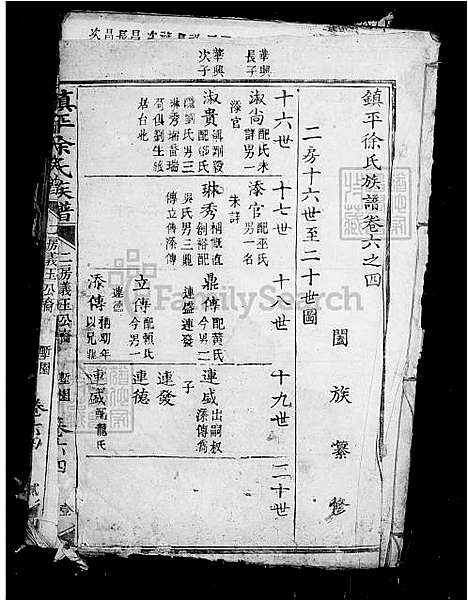 鎮平徐氏族譜卷六之四
闔族纂修
二房十六世至二十世圖
十六世
十七世
十八世
十九世
二十世
華興
長子
淑尚
配氏未
詳男一
添官
添官
配巫氏
男一名
朱詳
華興
次子
淑貴
配邱氏
繼劉氏男三
琳秀瑞
苟俱劉生
居台北
琳秀
吳氏男三鼎
傳立傳添傳
鼎傳
配黃氏
今男二
連盛連發
連盛
出嗣叔
添傳為
子
連發
立傳
配賴氏
今男一
連德
連德
添傳
以兄鼎
連盛
配龍氏
鎮平徐氏族譜
二房義玉公裔
卷六之四
壹
FamilySearch